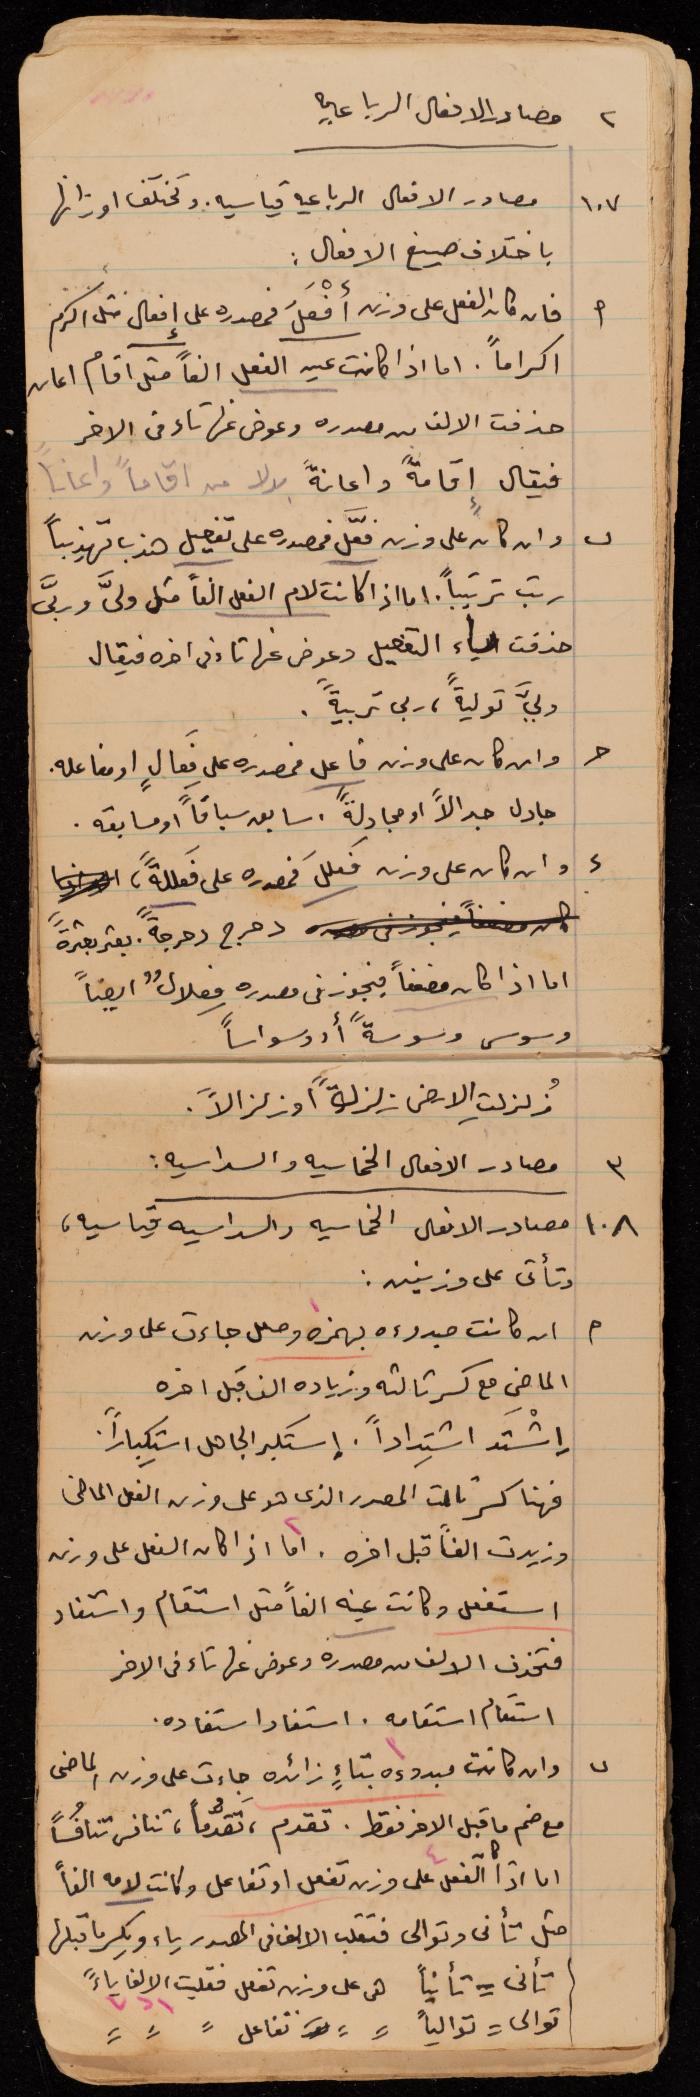 ٢ مصادر الافعال الرباعيه
١٠٧ مصادر الافعال الرباعيه قياسيه. وتختلف اوزانها
باختلاف صيغ الافعال :
م فان كان الفعل على وزن أَفْعَلَ فمصدره على إفعال مثل اكرم
اكراماً . اما اذا كانت عين الفعل الفاً مثل اقام اعان
حذفت الالف من مصدره وعوض عنها تاء فى الاخر
فيقال إقامةً واعانةً بدلا من اقاماً واعاناً
ب وان كان على وزن فعَّل فمصدره على تفعيل هذب تهذيباً
رتب ترتيباً . اما اذا كانت لام الفعل الفاً مثل ولَّى وربَّى
حذفت ياء التفعيل وعوض عنها تاء فى اخره فيقال
ولَّى توليةً ، ربى تربيةً .
حـ وان كان على وزن فاعل فمصدره على فِعَالٍ او مفاعله.
جادل جدالاً او مجادلةً . سابق سباقاً او مسابقه .
ء وان كان على وزن فَعْلَلَ فمصدره على فَعْلَلةً ،
كان مضعفاً فيجوز فى مصدره دحرج دحرجةً . بعثر بعثرةً
اما اذا كان مضعفاً فيجوز فى مصدره فِعلال ايضاً
وسوس وسوسةً أو وسواساً
زُلزلتِ الارض زلزلةً او زلزالاً .
٣ مصادر الافعال الخماسيه والسداسيه :
١٠٨ مصادر الافعال الخماسيه والسداسيه قياسيه ،
وتأتى على وزنين :
م ١ ان كانت مبدوءه بهمزه وصل جاءت على وزن
الماضى مع كسر ثالثه وزياده الف قبل اخره
إشْتَد اشتِداداً . إستكبر الجاهل استِكباراً .
فهنا كسر ثالث المصدر الذى هو على وزن الفعل الماضى
وزيدت الفاً قبل اخره . ٢ اما اذا كان الفعل على وزن
استفعل وكانت عينه الفاً مثل استقام واستفاد
فتحذف الالف من مصدره وعوض عنها تاء فى الاخر
استقام استقامه . استفاد استفاده .
ب ٣ وان كانت مبدوءه بتاءٍ زائده جاءت على وزن الماضى
مع ضم ما قبل الاخر فقط . تقدم ، تَقَدُّماً ، تنافس تنافُساً
٤ اما اذا كان الفعل على وزن تفعل او تفاعل وكانت لامه الفاً
مثل تأنى وتوالى فتقلب الالف فى المصدر ياء ويكسر ما قبلها
تأنى = تأنياً هى على وزن تفعل فقلبت الالف ياءً
توالى = توالياً = = تفاعل = = = =